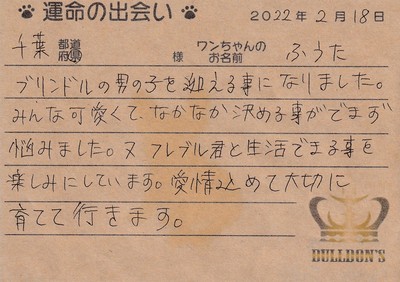 運命の出会い 2022年2月18日
千葉 都道府県 様 ワンちゃんのお名前 ふうた
ブリンドルの男の子を迎える事になりました。
みんな可愛くて、なかなか決める事ができず
悩みました。又フレブル君と生活できる事を
楽しみにしています。愛情込めて大切に
育てて行きます。
BULLDON'S